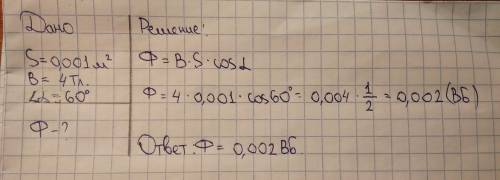 Дано
S = 0,001 м²
B = 4 Тл.
∠α = 60°
Ф - ?
Решение:
Ф = B · S · cos α
Ф = 4 · 0,001 · cos 60° = 0,004 · 1/2 = 0,002 (Вб)
Ответ: Ф = 0,002 Вб.